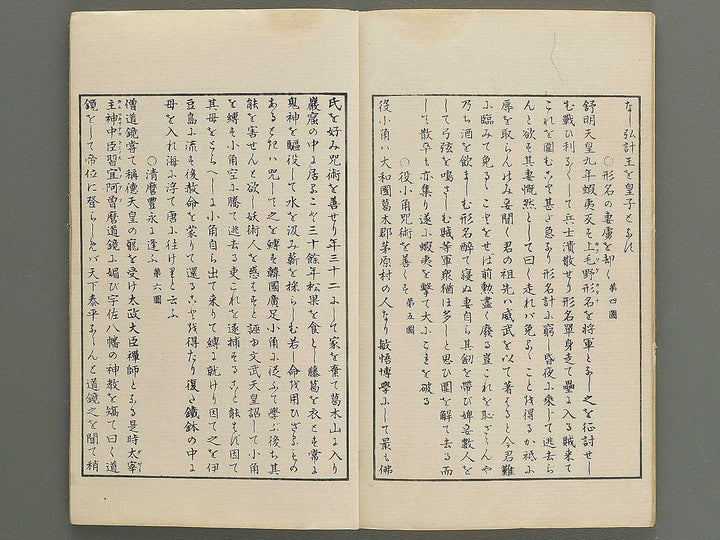 なし弘計王を皇子となす
○形名の妻虜を却く 第四圖
舒明天皇九年蝦夷反す上毛野形名を將軍となし之を征討せし
む戰ひ利なくして兵士潰散せり形名單身走て壘に入る賊来て
これを圍むこと甚だ急なり形名計ふ窮し昏夜ふ乘じて逃去ら
んと欲す其妻慨然として曰く走れバ免るゝこと倓得るか祗ふ
辱を取らんのみ妾聞く君の祖先ハ威武を以て著はると今君難
ふ臨みて免るゝことをせば前勲盡く廢る豈これを恥ざらんや
乃ち酒を飲ましむ形名醉て寝ぬ妻自ら其劔を帶び婢妾數人を
して弓弦を鳴さしむ賊等軍衆猶ほ多しと思ひ圍を解て去る而
して散卒も亦集り遂ふ蝦夷を擊て大ふこれを破る
○役小角咒術を善くす 第五圖
役小角ハ大和國葛木郡茅原村の人なり敏悟博學ふして最も佛
氏を好み咒術を善せり年三十二ふして家を棄て葛木山に入り
巖窟の中に居ること三十餘年松果を食とし藤葛を衣とす常に
鬼神を驅役して水を汲み薪を採らしむ若し命倓用ひざるもの
あるときハ咒して之を縛す韓國廣足小角ふ從ふて學ぶ後ち其
能を害せんと欲し妖術人を惑はすと誣ゆ文武天皇詔して小角
を縛す小角空ふ騰て逃去る吏これを逮捕すること能はず因て
其母をとらへしに小角自ら出て来りて縛に就けり因て之を伊
豆島ふ流す後赦命を蒙りて還ること倓得たり復た鐵鉢の中に
母を入れ海ふ浮て唐ふ往けりと云ふ
○清麿豐永に逢ふ 第六圖
僧道鏡嘗て稱德天皇の寵を受け太政大臣禪師となる是時太宰
主神中臣習宜阿曽麿道鏡ふ媚び宇佐八幡の神教を矯て曰く道
鏡をして帝位に登らしめバ天下泰平ならんと道鏡之を聞て稍